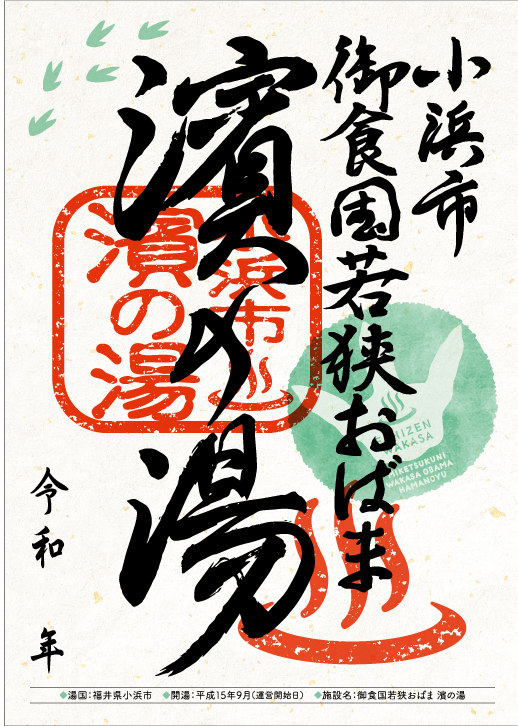 小浜市
御食国若狭おばま
濱の湯
小浜市
濱の湯
SHIZEN
WAKASA
MIKETSUKUNI
WAKASA OBAMA
HAMANOYU
令和 年
◆湯国：福井県小浜市 ◆開湯：平成15年9月（運営開始日） ◆施設名：御食国若狭おばま 濱の湯